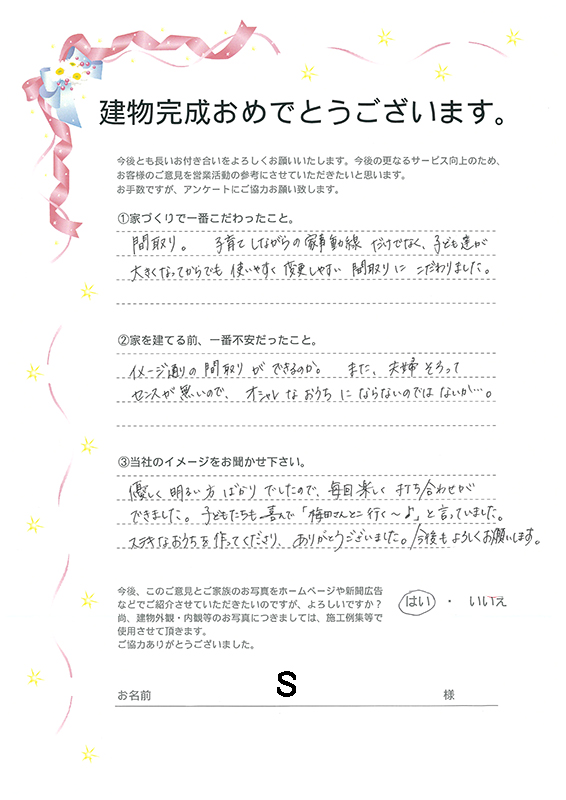 建物完成おめでとうございます。
今後とも長いお付き合いをよろしくお願いいたします。今後の更なるサービス向上のため、
お客様のご意見を営業活動の参考にさせていただきたいと思います。
お手数ですが、アンケートにご協力お願い致します。
①家づくりで一番こだわったこと。
間取り。 子育てしながらの家事動線 だけでなく、子ども達が
大きくなってからでも 使いやすく 変更しやすい 間取りに こだわりました。
②家を建てる前、一番不安だったこと。
イメージ通りの 間取り が できるのか。 また、夫婦 そろって
センスが 悪いので、 オシャレな おうち に ならないのでは ないか…。
③当社のイメージをお聞かせ下さい。
優しく 明るい 方 ばかり でしたので、毎回 楽しく 打ち合わせが
できました。 子どもたちも 喜んで「梅田さんとこ 行く〜♪」と 言っていました。
ステキなおうちを 作ってくださり、ありがとうございました。今後も よろしくお願いします。
今後、このご意見とご家族のお写真をホームページや新聞広告
などでご紹介させていただきたいのですが、よろしいですか？
はい ・ いいえ
尚、建物外観・内観等のお写真につきましては、施工例集等で
使用させて頂きます。
ご協力ありがとうございました。
お名前 S 様